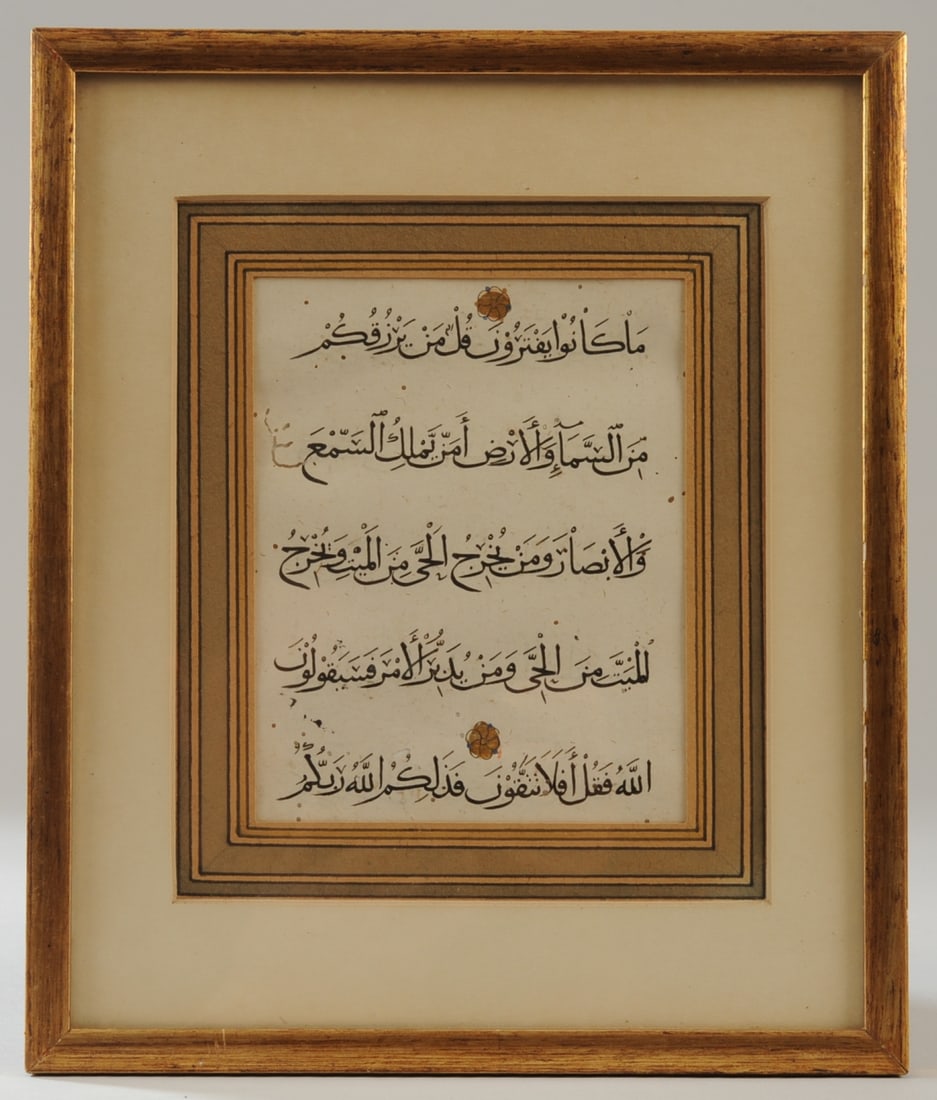 مَا كَانُوا يَفْتَرُوْنَ قُلْ مَنْ يَرْزُقُكُمْ
مِّنَ السَّمَآءِ وَالْأَرْضِ أَمَّنْ يَّمْلِكُ السَّمْعَ
وَالْأَبْصَارَ وَمَنْ يُخْرِجُ الْحَىَّ مِنَ الْمَيِّتِ وَيُخْرِجُ
الْمَيِّتَ مِنَ الْحَىِّ وَمَنْ يُدَبِّرُ الْأَمْرَ فَسَيَقُوْلُوْنَ
اللّٰهُ فَقُلْ أَفَلَا تَتَّقُوْنَ فَذَلِكُمُ اللّٰهُ رَبُّكُمُ